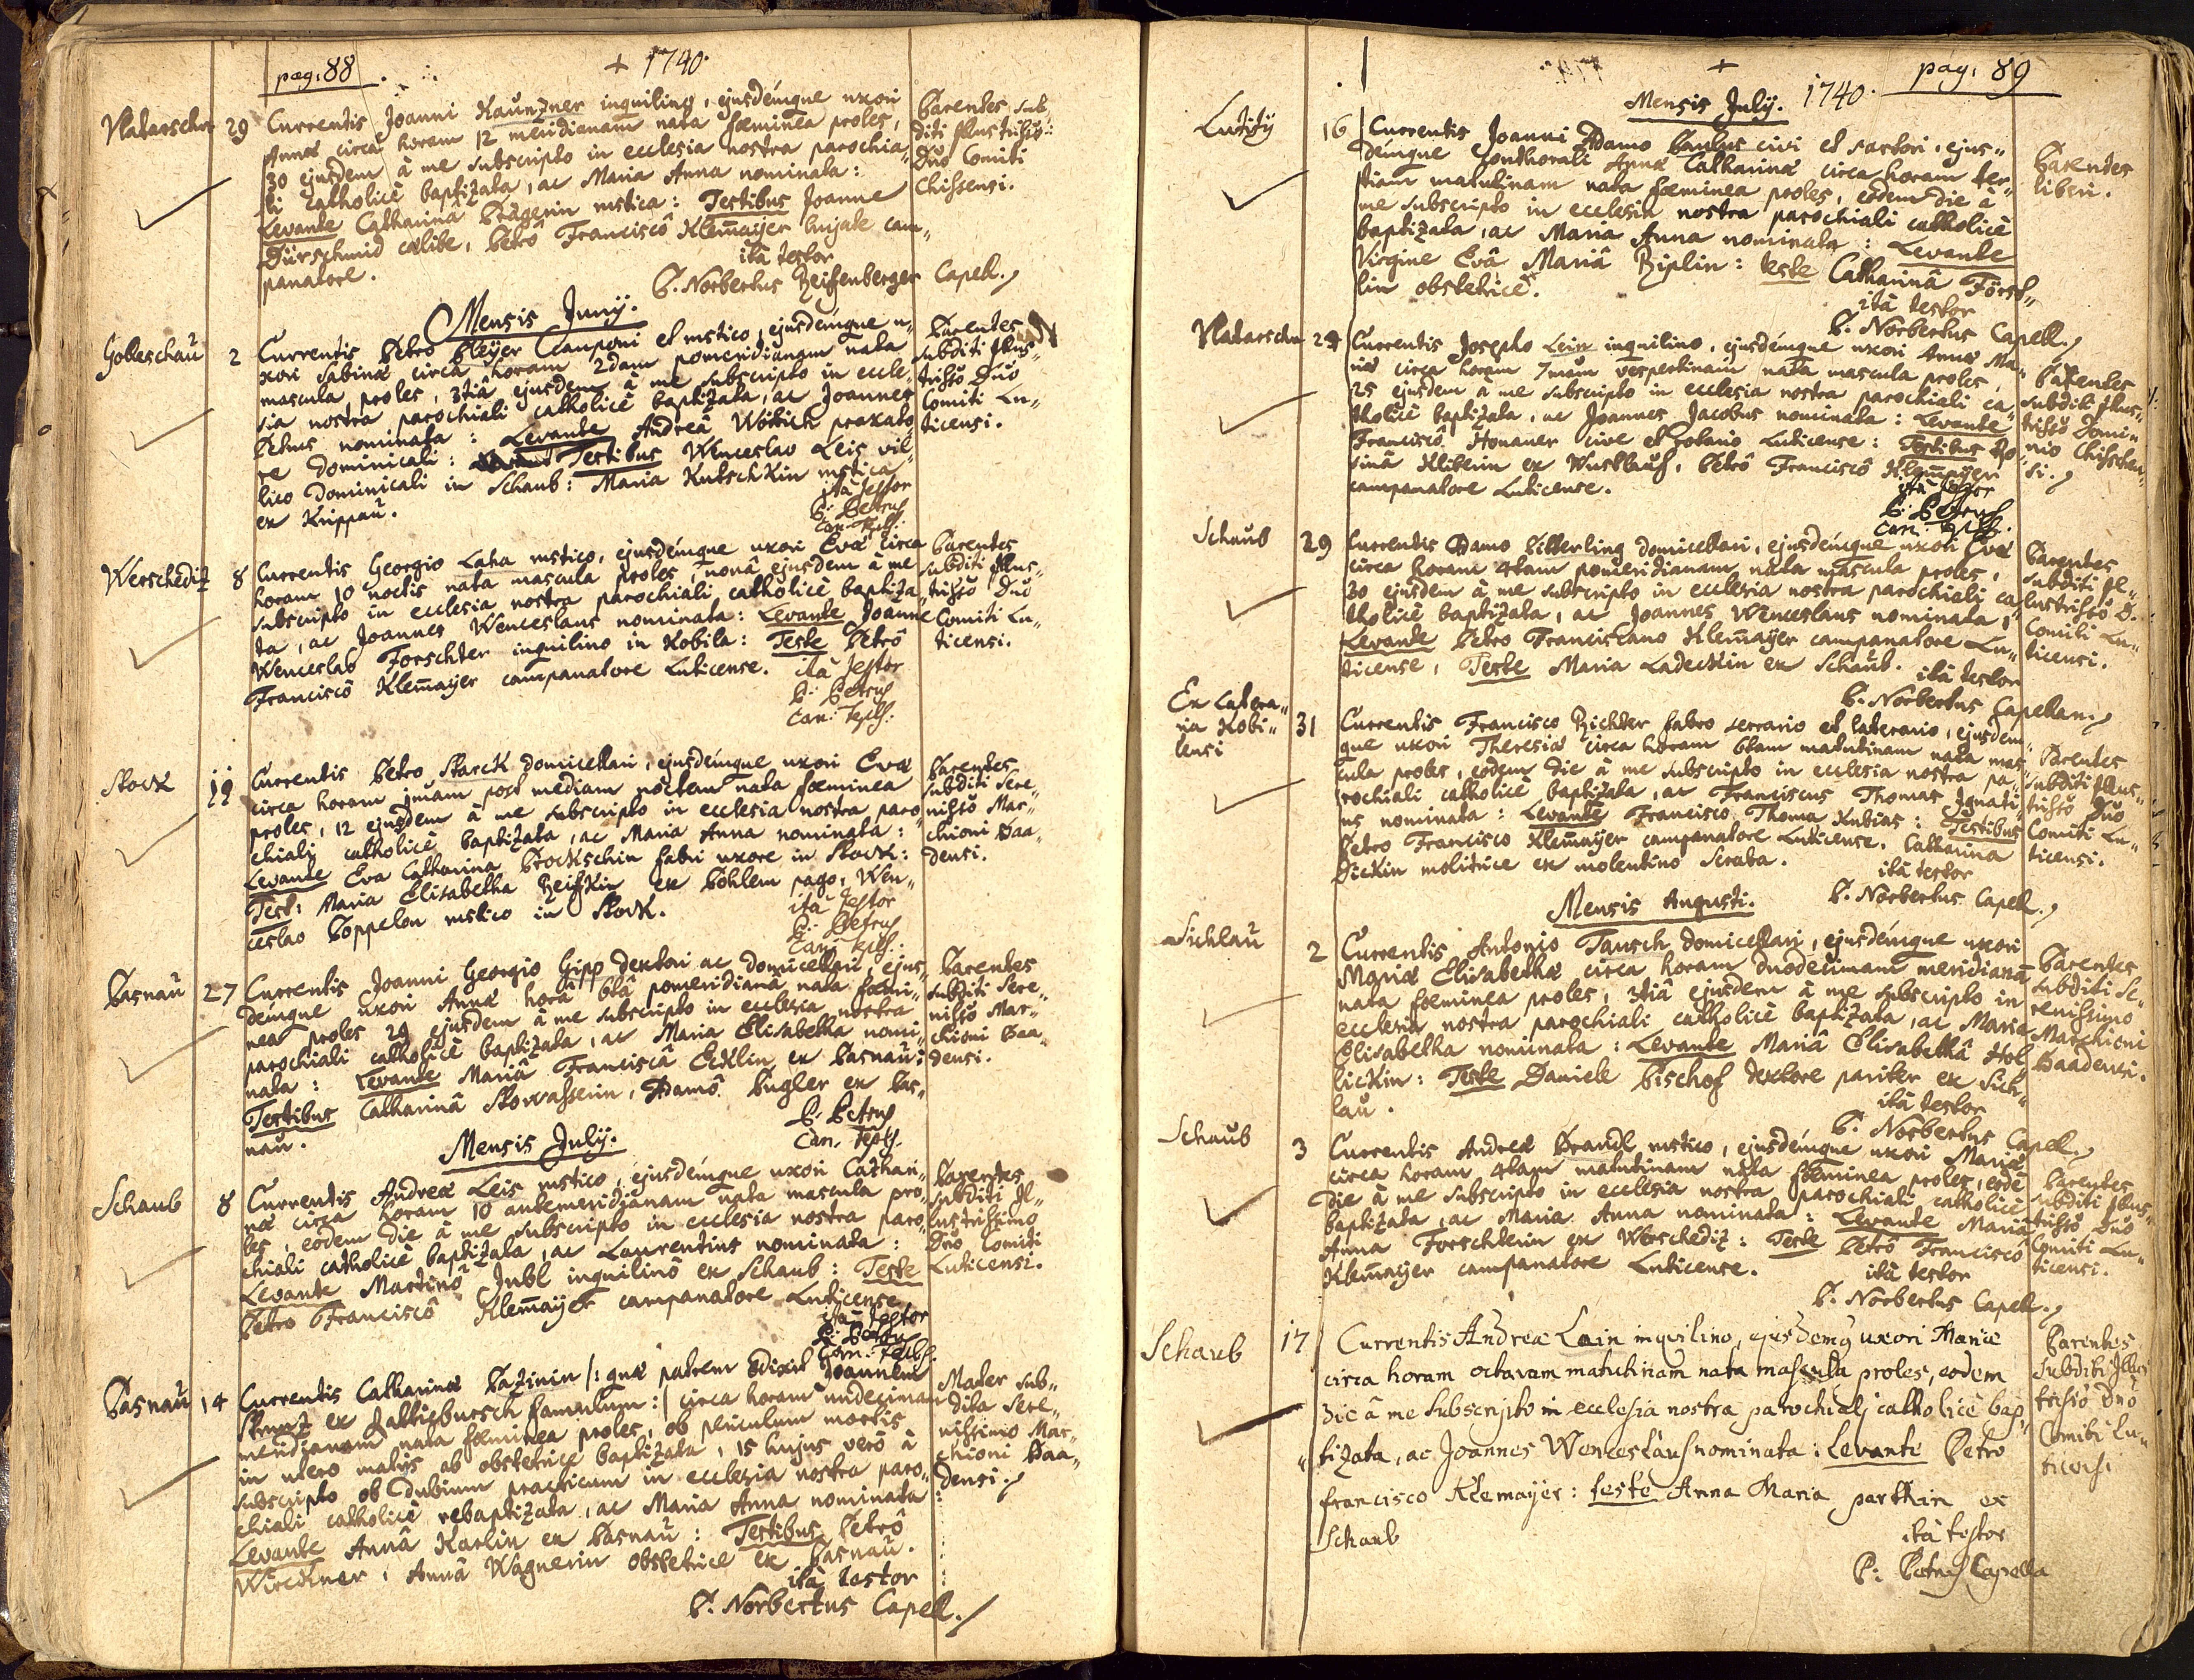 pag: 88
+ 1740.
Vladarschn 29 Currentis Joanni Kaunzner inquilino, ejusdémque uxori
Annæ circa horam 12 meridianam nata fœminea proles,
30 ejusdem à me subscripto in ecclesia nostra parochia„
li catholicè baptizata, ac Maria Anna nominata:
Levante Catharinâ rustica: Testibus Joanne
Dürschmid cœlibe, Petrô Franciscô Klem̄aijer hujate cam„
panatore.
ità testor
P. Norbertus Reissenberger Capell.
Parentes sub„
diti Illustrissō:
Dn̄o Comiti
Chissensi.
Mensis Junij.
Goleschaŭ 2 Currentis Petro Pleijer Cauponi et rustico, ejusdémque u„
xori Sabinæ circa horam 2dam pomeridianam nata
mascula proles, 3tiâ ejusdem à me subscripto in eccle„
sia nostra parochiali catholicè baptizata, ac Joannes
Petrus nominata: Levante Andreâ Wöttich praxato„
re Dominicali: Testibus Wenceslao Leis vil„
lico Dominicali in Schaub: Maria Kutschkin rustica
ex Krippaŭ.
ità testor
P: Petrus
Can: Tepls:
Parentes
subditi Illus„
trissō Dn̄o
Comiti Lu„
ticensi.
Werschediz 8 Currentis Georgio Laha rustico, ejusdémque uxori Evæ circa
horam 10 noctis nata mascula proles, nonâ ejusdem à me
subscripto in ecclesia nostra parochiali catholicè baptiza„
ta, ac Joannes Wenceslaus nominata: Levante Joanne
Wenceslaô Forschter inquilino in Kobila: Teste Petrô
Franciscô Klem̄aijer campanatore Luticense.
ità testor
P: Petrus
Can: Tepls:
Parentes
subditi Illus„
trissō Dn̄o
Comiti Lu„
ticensi.
Stock Currentis Petro Starck domicellari, ejusdémque uxori Evæ
circa horam 1mam post mediam noctem nata fœminea
proles, 12 ejusdem à me subscripto in ecclesia nostra paro„
chiali catholicè baptizata, ac Maria Anna nominata:
Levante Eva Catharina Prockschin fabri uxore in Stock:
Test: Maria Elisabetha ex Böhlem pago, Wen„
ceslao Poppelon rustico in Stock.
ità testor
P: Petrus
Can: Tepls:
Parentes
subditi Sere„
nissō Mar„
chioni Baa„
densi.
Pasnaŭ 27 Currentis Joanni Georgio Gipp textori ac domicellari, ejus„
démque uxori Annæ horâ 6tâ pomeridianâ nata fœmi„
nea proles 29 ejusdem à me subscripto in ecclesia nostra
parochiali catholicè baptizata, ac Maria Elisabetha nomi„
nata: Levante Mariâ Franciscâ Ecklin ex Pasnaŭ:
Testibus Catharinâ Stowasserin, Adamô Pugler ex Pas„
naŭ.
P: Petrus
Can. Tepls.
Parentes
subditi Sere„
nissō Mar„
chioni Baa„
densi.
Mensis Julij.
Schaub 8 Currentis Andreæ Leis rustico, ejusdémque uxori Cathari„
næ circa horam 10 antemeridianam nata mascula pro„
les, eodem die à me subscripto in ecclesia nostra paro„
chiali catholicè baptizata, ac Laurentius nominata:
Levante Martinô Jubl inquilinô ex Schaub: Teste
Petro Franciscô Klem̄aijer campanatore Luticense
ità testor
P: Petrus
Can: Tepls:
Parentes
subditi Il„
lustrissimo
Dn̄o Comiti
Luticensi.
Pasnaŭ 14 Currentis Catharinæ Pazinin /: quæ patrem dixit Joannem
ex famulum :/ circa horam undecimam
meridianam nata fœminea proles, ob periculum mortis
in utero matris ab obstetrice baptizata, 15 hujus verò à
subscripto ob dubium practicum in ecclesia nostra paro„
chiali catholicè rebaptizata, ac Maria Anna nominata
Levante Annâ Karlin ex Pasnaŭ: Testibus Petrô
Wirckner, Annâ Wagnerin obstetrice ex Pasnaŭ.
ità testor
P. Norbertus Capell.
Mater sub„
dita Sere„
nissimo Mar„
chioni Baa„
densi.
pag: 89
+
Mensis Julij. 1740.
Lutitz 16 Currentis Joanni Adamo Paulus civi et sartori, ejus„
démque conthorali Annæ Catharinæ circa horam ter„
tiam matutinam nata fœminea proles, eodem die à
me subscripto in ecclesia nostra parochiali catholicè
baptizata, ac Maria Anna nominata: Levante
Virgine Evâ Mariâ Riplin: teste Catharinâ Först„
lin obstetrice.
ità testor
P. Norbertus Capell.
Parentes
liberi.
Vladarschn 24 Currentis Josepho Lein inquilino, ejusdémque uxori Annæ Ma„
riæ circa horam 7mam vespertinam nata mascula proles,
25 ejusdem à me subscripto in ecclesia nostra parochiali ca„
tholicè baptizata, ac Joannes Jacobus nominata: Levante
Franciscô Honauer cive et Luticense: Testibus Ro„
sinâ Kliberin ex, Petrô Franciscô Klem̄aijer
campanatore Luticense.
ità testor
P: Petrus
Can: Tepls.
Parentes
subditi Illus„
trissō Domi„
no Chisschen„
si.
Schaub 29 Currentis Adamo Bitterling domicellari, ejusdémque uxori Evæ
circa horam 4tam pomeridianam nata mascula proles,
30 ejusdem à me subscripto in ecclesia nostra parochiali ca„
tholicè baptizata, ac Joannes Wenceslaus nominata,
Levante Petro Franciscano Klem̄aijer campanatore Lu„
ticense, Teste Maria Ladeckin ex Schaub.
ità testor
P. Norbertus Capellan.
Parentes
subditi Il„
lustrissō D.
Comiti Lu„
ticensi.
Ex Latera„
ria Kobi„
lensi 31 Currentis Francisco Richter fabro serrario et laterario, ejusdem„
que uxori Theresiæ circa horam 6tam matutinam nata mas„
cula proles, eodem die à me subscripto in ecclesia nostra pa„
rochiali catholicè baptizata, ac Franciscus Thomas Ignati„
us nominata: Levante Francisco Thoma Kubias: Testibus
Petro Francisco Klem̄aijer campanatore Luticense. Catharina
Dickin molitrice ex molentino Scraba.
ità testor
P. Norbertus Capell.
Parentes
subditi Illus„
trissō Dn̄o
Comiti Lu„
ticensi.
Mensis Augusti.
Sichlaŭ 2 Currentis Antonio Tausch domicellari, ejusdémque uxori
Mariæ Elisabethæ circa horam duodecimam meridianā
nata fœminea proles, 3tiâ ejusdem à me subscripto in
ecclesia nostra parochiali catholicè baptizata, ac Maria
Elisabetha nominata: Levante Mariâ Elisabethâ Hol„
lickin: Teste Daniele Bischof textore pariter ex Sich„
laŭ.
ità testor
P. Norbertus Capell.
Parentes
subditi Se„
renissimo
Marchioni
Baadensi.
Schaub 3 Currentis Andreæ Brandl rustico, ejusdémque uxori Mariæ
circa horam 4tam matutinam nata fœminea proles, eodē
die à me subscripto in ecclesia nostra parochiali catholicè
baptizata, ac Maria Anna nominata: Levante Mariâ
Anna Forschterin ex Werschediz: Teste Petrô Franciscô
Klem̄aijer campanatore Luticense.
ità testor
P. Norbertus Capell.
Parentes
subditi Illus„
trissō Dn̄o
Comiti Lu„
ticensi.
Schaub 17 Currentis Andreæ Lein inquilino, ejusdemq̃ uxori Mariæ
circa horam octavam matutinam nata mascula proles, eodem
die à me subscripto in ecclesia nostra parochiali catholicè bap„
tizata, ac Joannes Wenceslaus nominata: Levante Petro
francisco Klemayer: teste Anna Maria parthin ex
Schaub
ità testor
P: Petrus Capella
Parentes
subditi Illus
trissō Dn̄o
Comiti Lu„
ticensi